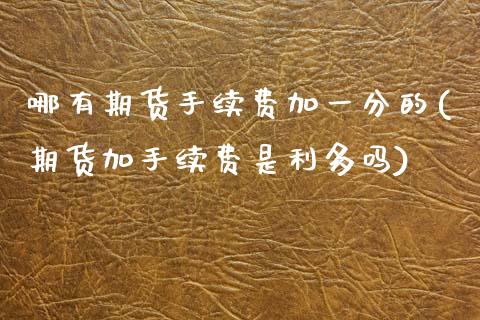 哪有期货手续费加一分的(
期货加手续费是利多吗)